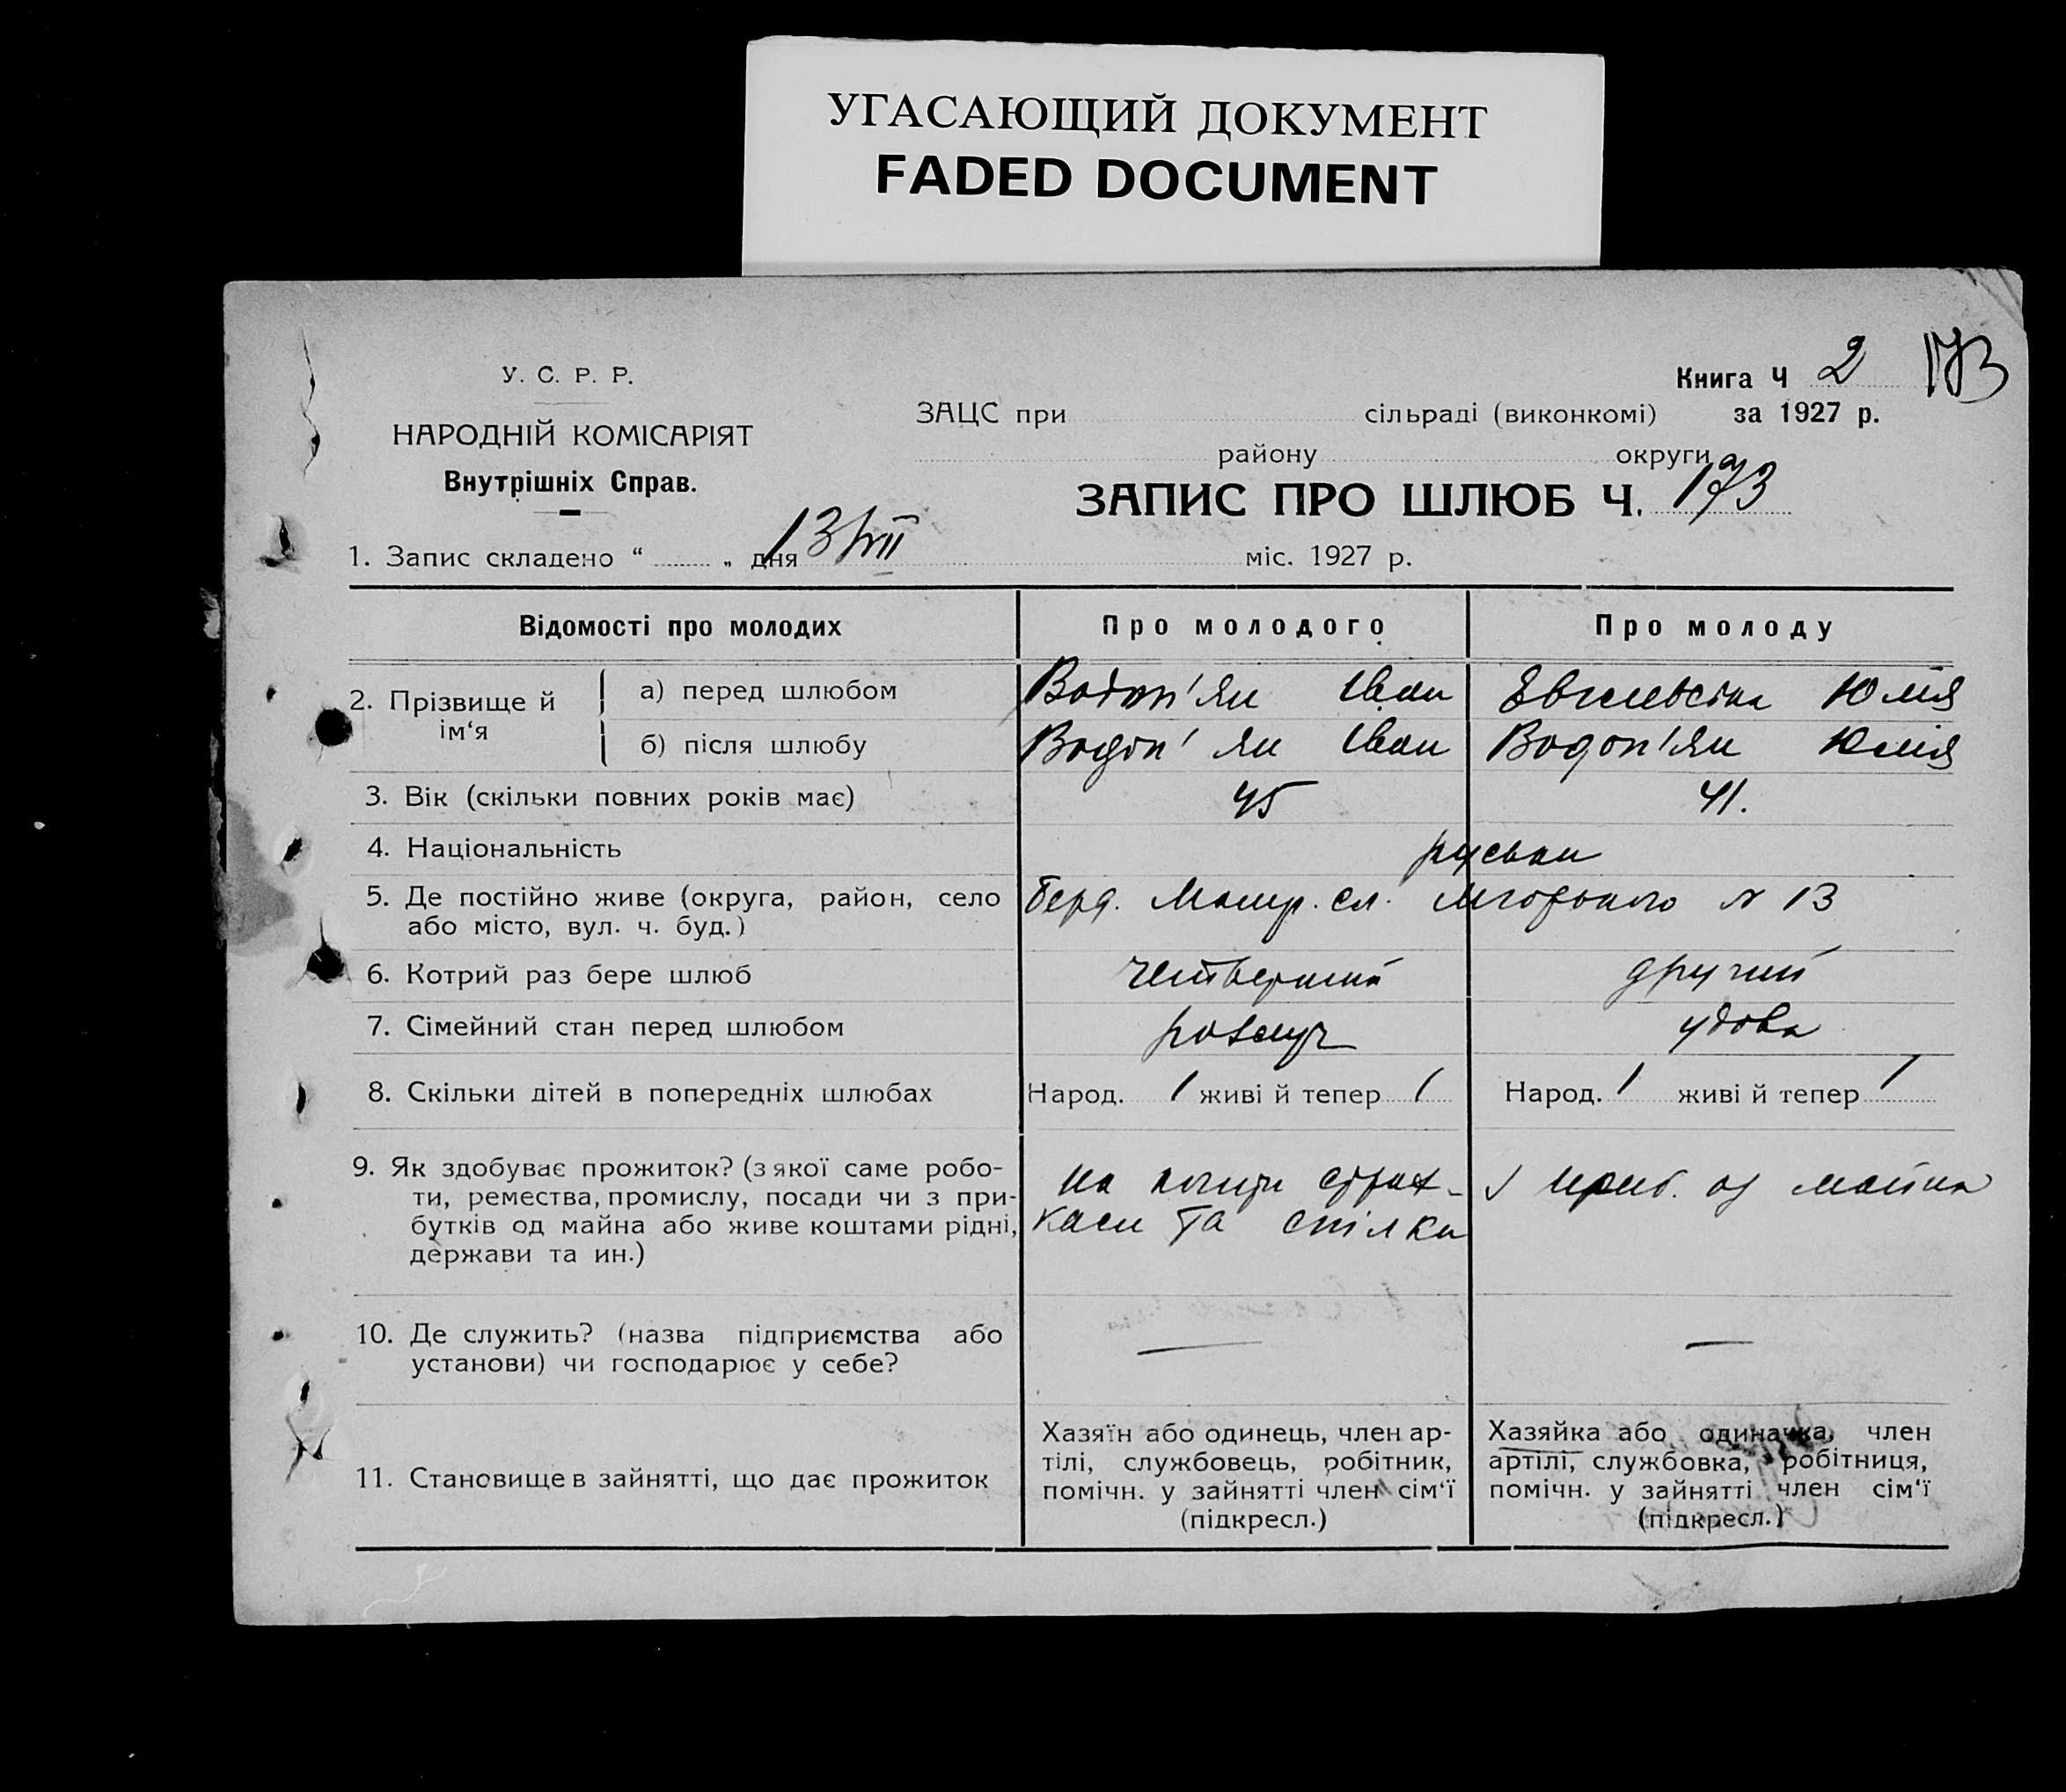 УГАСАЮЩИЙ ДОКУМЕНТ
FADED DOCUMENT
У. С. Р. Р.
НАРОДНІЙ КОМІСАРІЯТ
Внутрішніх Справ.
Книга Ч 2 173
ЗАЦС при сільраді (виконкомі) за 1927 р.
району округи
ЗАПИС ПРО ШЛЮБ Ч. 173
1. Запис складено “ „ дня 13/VII міс. 1927 р.
Відомості про молодих Про молодого Про молоду
2. Прізвище й ім‘я
а) перед шлюбом Водоп'ян Іван Юлія
б) після шлюбу Водоп'ян Іван Водоп'ян Юлія
3. Вік (скільки повних років має) 45 41.
4. Національність
5. Де постійно живе (округа, район, село Берд. № 13
або місто, вул. ч. буд.)
6. Котрий раз бере шлюб четвертий другий
7. Сімейний стан перед шлюбом розлуч удова
8. Скільки дітей в попередніх шлюбах Народ. 1 живі й тепер 1 Народ. 1 живі й тепер 1
9. Як здобуває прожиток? (з якої саме робо- на кошти страх- з приб. од майна
ти, ремества, промислу, посади чи з при- каси та спілки
бутків од майна або живе коштами рідні,
держави та ин.)
10. Де служить? (назва підприємства або — —
установи) чи господарює у себе?
11. Становище в зайнятті, що дає прожиток
Хазяїн або одинець, член ар-
тілі, службовець, робітник,
помічн. у зайнятті член сім‘ї
(підкресл.)
Хазяйка або одиначка, член
артілі, службовка, робітниця,
помічн. у зайнятті член сім‘ї
(підкресл.)